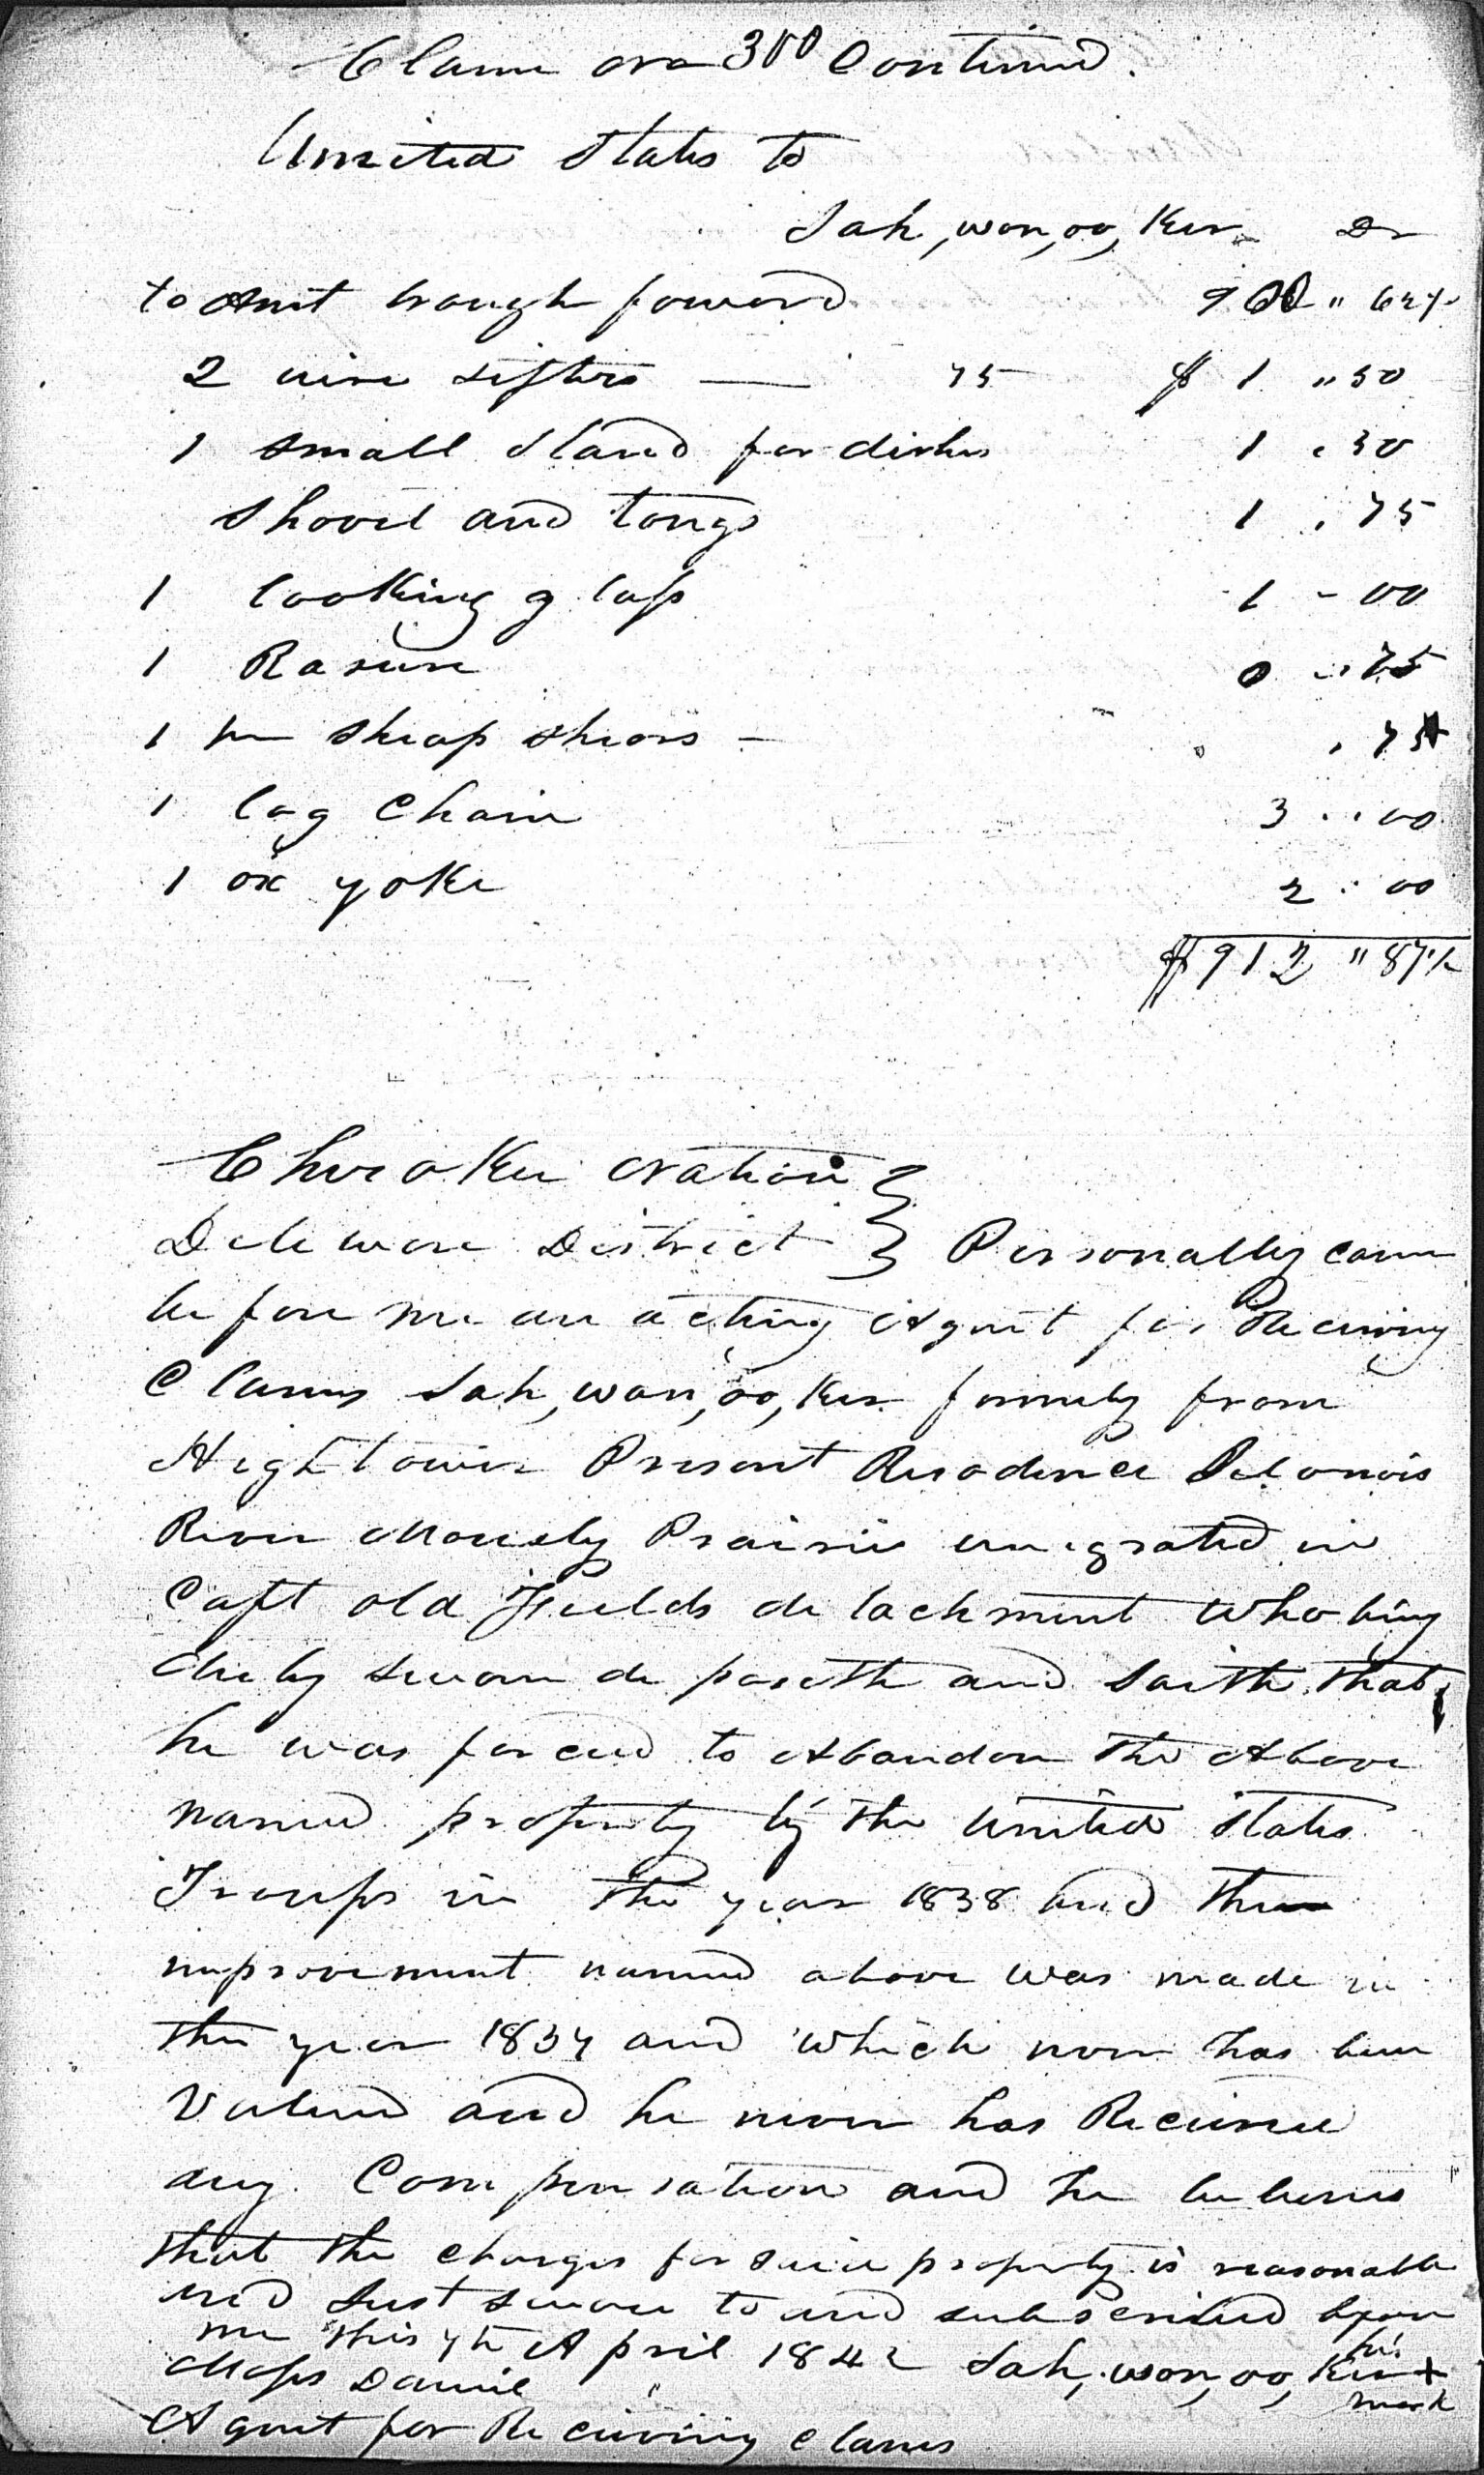 Claim No 300 Continued.
United States to
Sah,won,oo,Kee Dr
to amt brough foward 900 " 62½
2 wire sifters — 75 $ 1 " 50
1 small stand for dishes 1 . 50
Shovel and tongs 1 . 75
1 looking glass 1 - 00
1 Rasure 0 .. 75
1 pr sheap shears - . 75
1 log Chain 3 .. 00
1 ox yoke 2 . 00
$ 912 " 87½
Cherokee Nation
Deleware District } Personally came
before me an acting Agent for Receiving
Claims Sah,won,oo,Kee formely from
Hightower Present Resadence
River Mousely Prairie emigrated in
Capt old Fields detachment who being
duely sworn deposeth and Saith that
he was forced to Abandon the Above
named property by the United States
Troups in the year 1838 and the
improvement named above was made in
the year 1837 and which now has been
Valued and he never has Recieved
any Compensation and he beleives
that the charges for said property is reasonable
and Just sworn to and subscribed before
me this 7th April 1842 Sah,won,oo,Kee his x
mark
Moses Daniel
Agent for Receiving claims